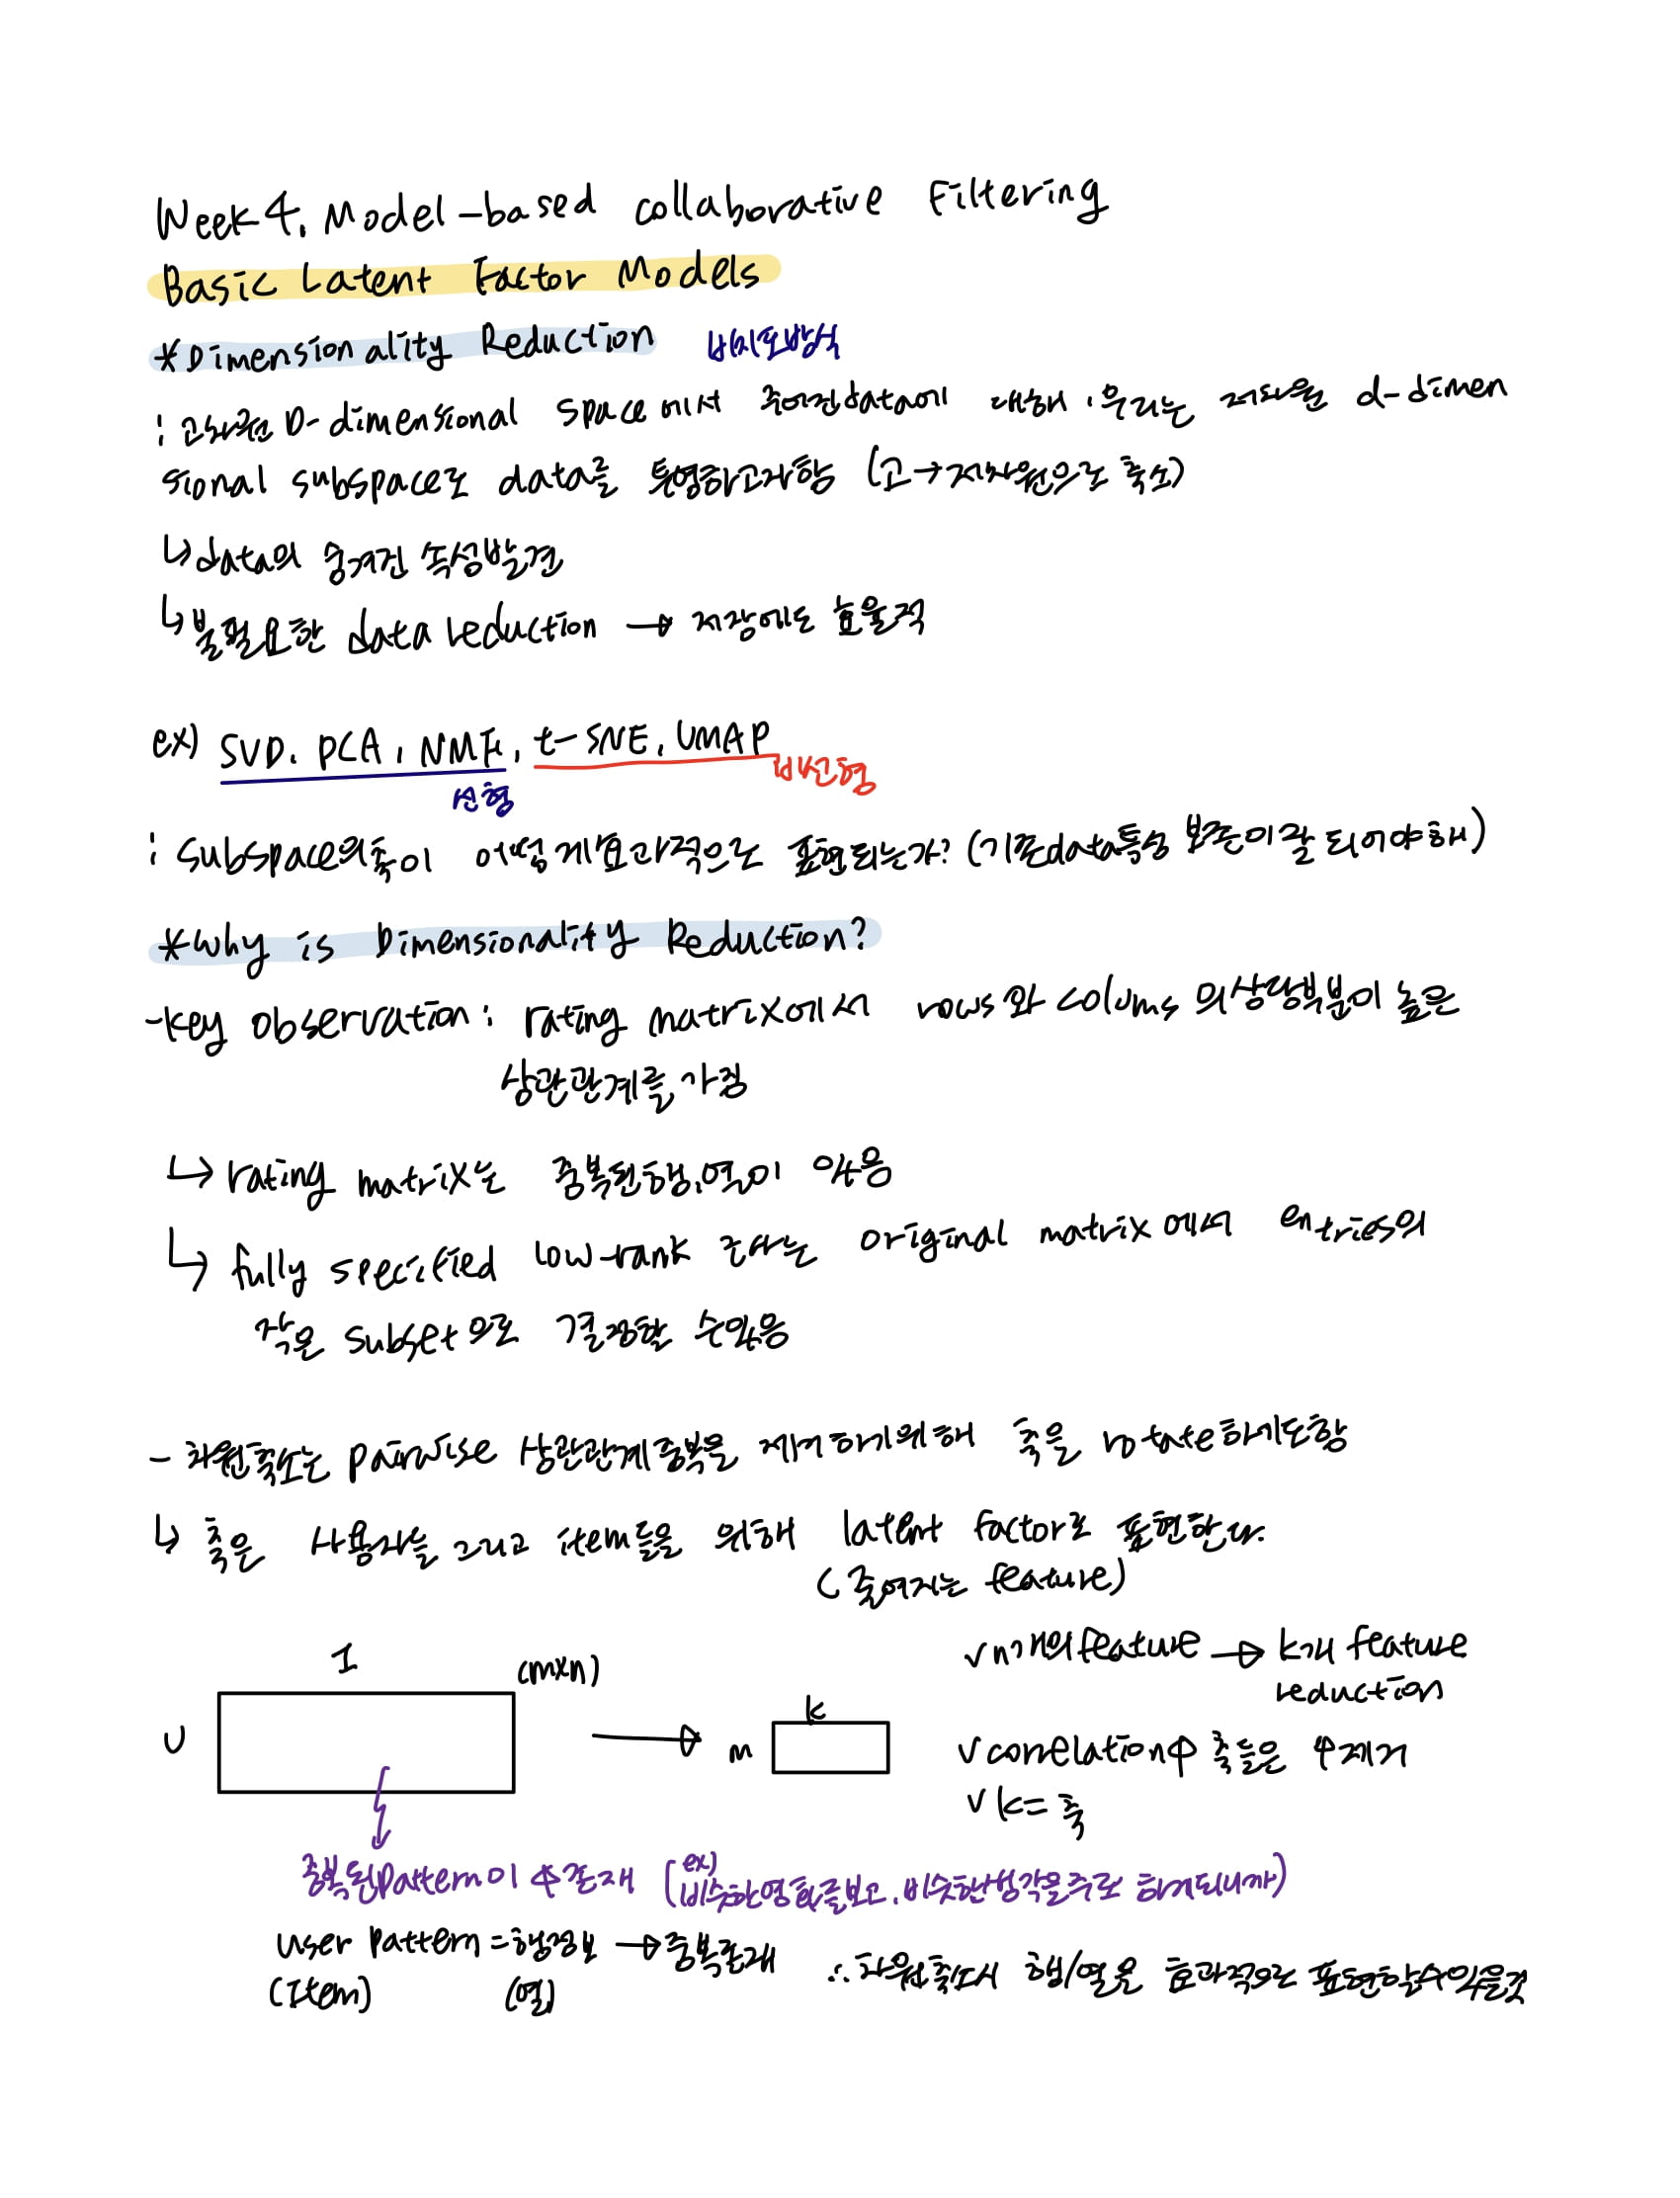 Week 4. Model-based collaborative Filtering
Basic Latent Factor Models
*Dimensionality Reduction 비지도방식
: 고차원 D-dimensional space에서 주어진 data에 대해, 우리는 저차원 d-dimen
sional subspace로 data를 투영하고자함 (고→저차원으로 축소)
↳data의 숨겨진 속성발견
↳불필요한 data reduction → 저장에도 효율적
ex) SVD, PCA, NMF, t-SNE, UMAP
선형 비선형
: subspace의 축이 어떻게 효과적으로 표현되는가? (기존data특성 보존이 잘 되어야해)
*Why is Dimensionality Reduction?
-key observation: rating matrix에서 rows와 colums의 상당부분이 높은
상관관계를 가짐
↳ rating matrix는 중복된 행,열이 있음
↳ fully specified low-rank 근사는 original matrix에서 entries의
작은 subset으로 결정할 수있음
- 차원축소는 pairwise 상관관계 중복을 제거하기위해 축을 rotate하기도함
↳ 축은 사용자들 그리고 item들을 위해 latent factor로 표현한다.
(줄여지는 feature)
I (m×n)
U → m k
√ n개의 feature → k개 feature
reduction
√ correlation↑ 축들은 ↑제거
√ k= 축
중복된 pattern이 ↑존재 (ex) 비슷한영화를보고, 비슷한생각을주로 하게되니까)
user pattern = 행정보 → 중복존재 ∴차원축소시 행/열을 효과적으로 표현할수있을것
(Item) (열)